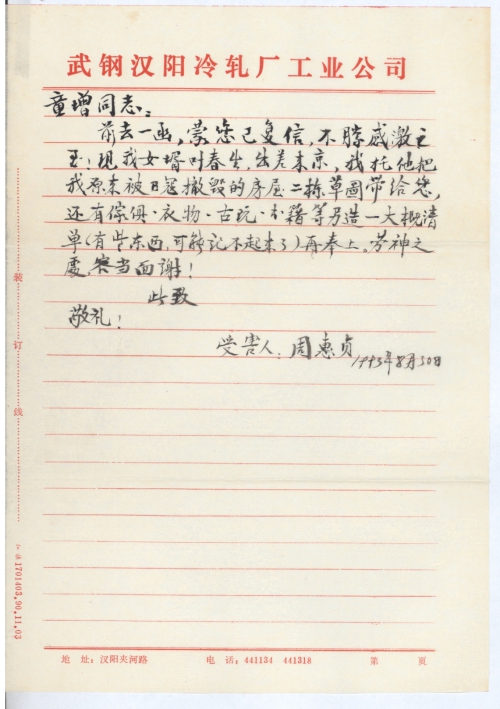 武钢汉阳冷轧厂工业公司
童增同志：
前去一函，蒙您已复信，不胜感激之
至；现我女婿叶春生，出差来京，我托他把
我原来被日寇撤毁的房屋二栋草圖带给您，
还有傢俱·衣物·古玩·书籍等另造一大概清
单（有些东西，可能记不起来了）再奉上。劳神之
處，容当面谢！
此致
敬礼！
受害人：周惠贞
1993年8月30日
装订线
1701403.90.11.03
地 址：汉阳夹河路 电 话：441134 441318 第 页